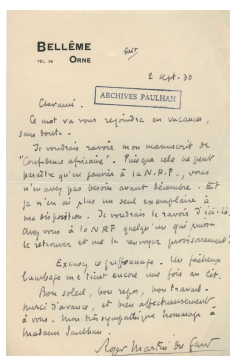 BELLÊME
TÉL. 26 ORNE
fait
2 sept. 30
ARCHIVES PAULHAN
Cher ami.
Ce mot va vous rejoindre en vacances,
sans doute.
Je voudrais ravoir mon manuscrit de
"Confidence africaine". Puisque cela ne peut
paraître qu'en janvier à la N.R.F., vous
n'en avez pas besoin avant décembre. Et
je n'en ai plus un seul exemplaire à
ma disposition. Je voudrais le ravoir d'ici-là.
Avez vous à la NRF quelqu'un qui puisse
le retrouver et me le renvoyer provisoirement?
Excusez ce griffonnage. Un fâcheux
lumbago me tient encore une fois au lit.
Bon soleil, bon repos, bon travail.
Merci d'avance, et bien affectueusement
à vous. Mon très sympathique hommage à
Madame Paulhan.
Roger Martin du Gard